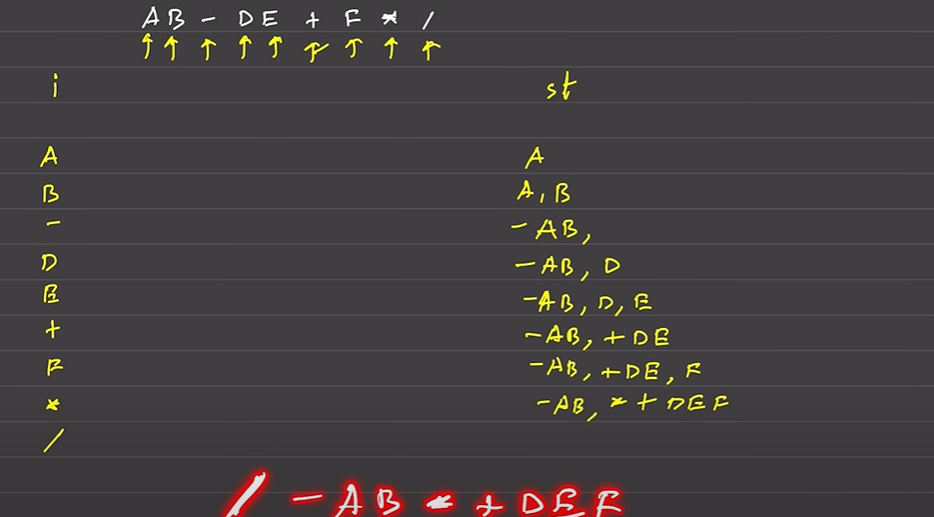 AB - DE + F * /
↑ ↑ ↑ ↑ ↑ ↑ ↑ ↑ ↑
i st
A A
B A, B
- - AB,
D - AB, D
E - AB, D, E
+ - AB, + DE
F - AB, + DE, F
* - AB, * + DEF
/
/ - AB * + DEF